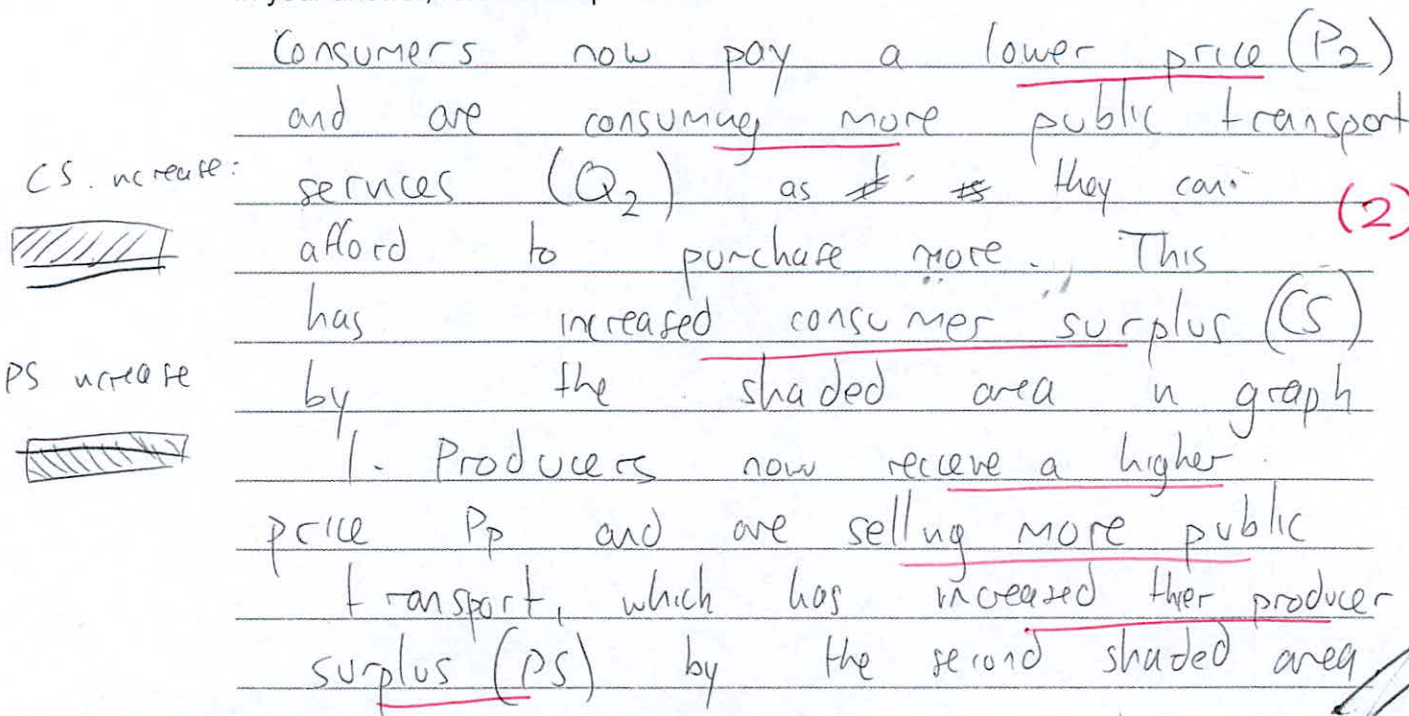 Consumers now pay a lower price (P2)
and are consuming more public transport
CS. increase:
services (Q2) as they can
(2)
afford to purchase more. This
has increased consumer surplus (CS)
PS increase
by the shaded area in graph
1. Producers now receive a higher
price Pp and are selling more public
transport, which has increased their producer
surplus (PS) by the second shaded area